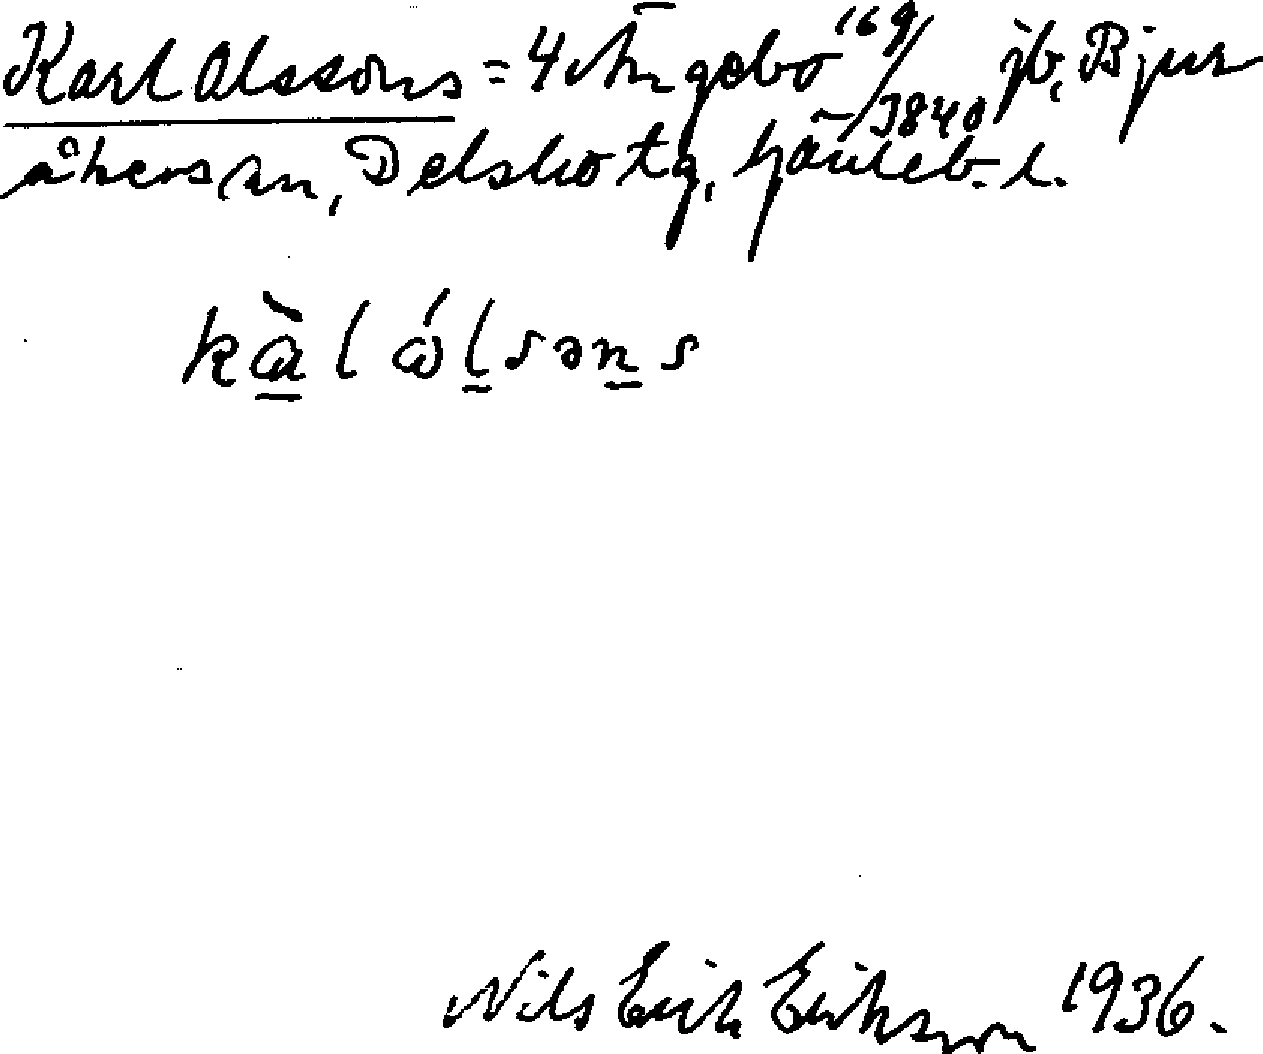 Karl Olssons = 4 i Ängebo 169/3840 jb, Bjur
åkers sn, Delsbo tg, Gävleb. l.
kὰl ólsəns
Nils Erik Eriksson 1936.